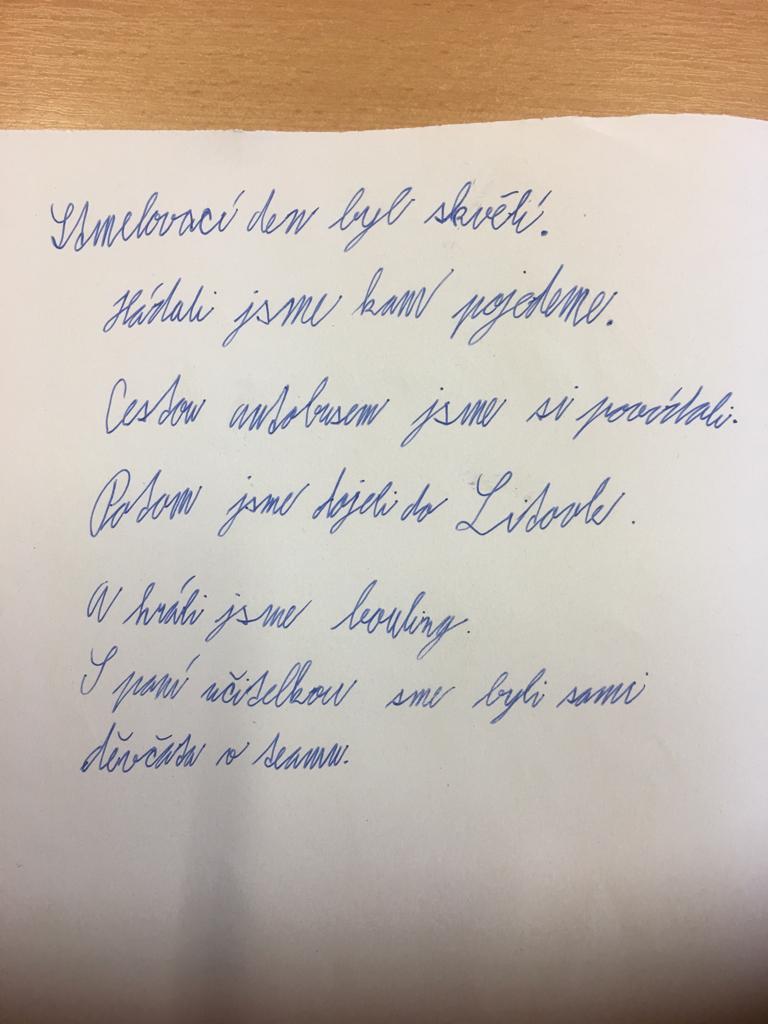 Stmelovací den byl skvělí.
Hádali jsme kam pojedeme.
Cestou autobusem jsme si povídali.
Potom jsme dojeli do Litovle.
A hráli jsme bouling.
S paní učitelkou sme byli sami
děvčata v teamu.